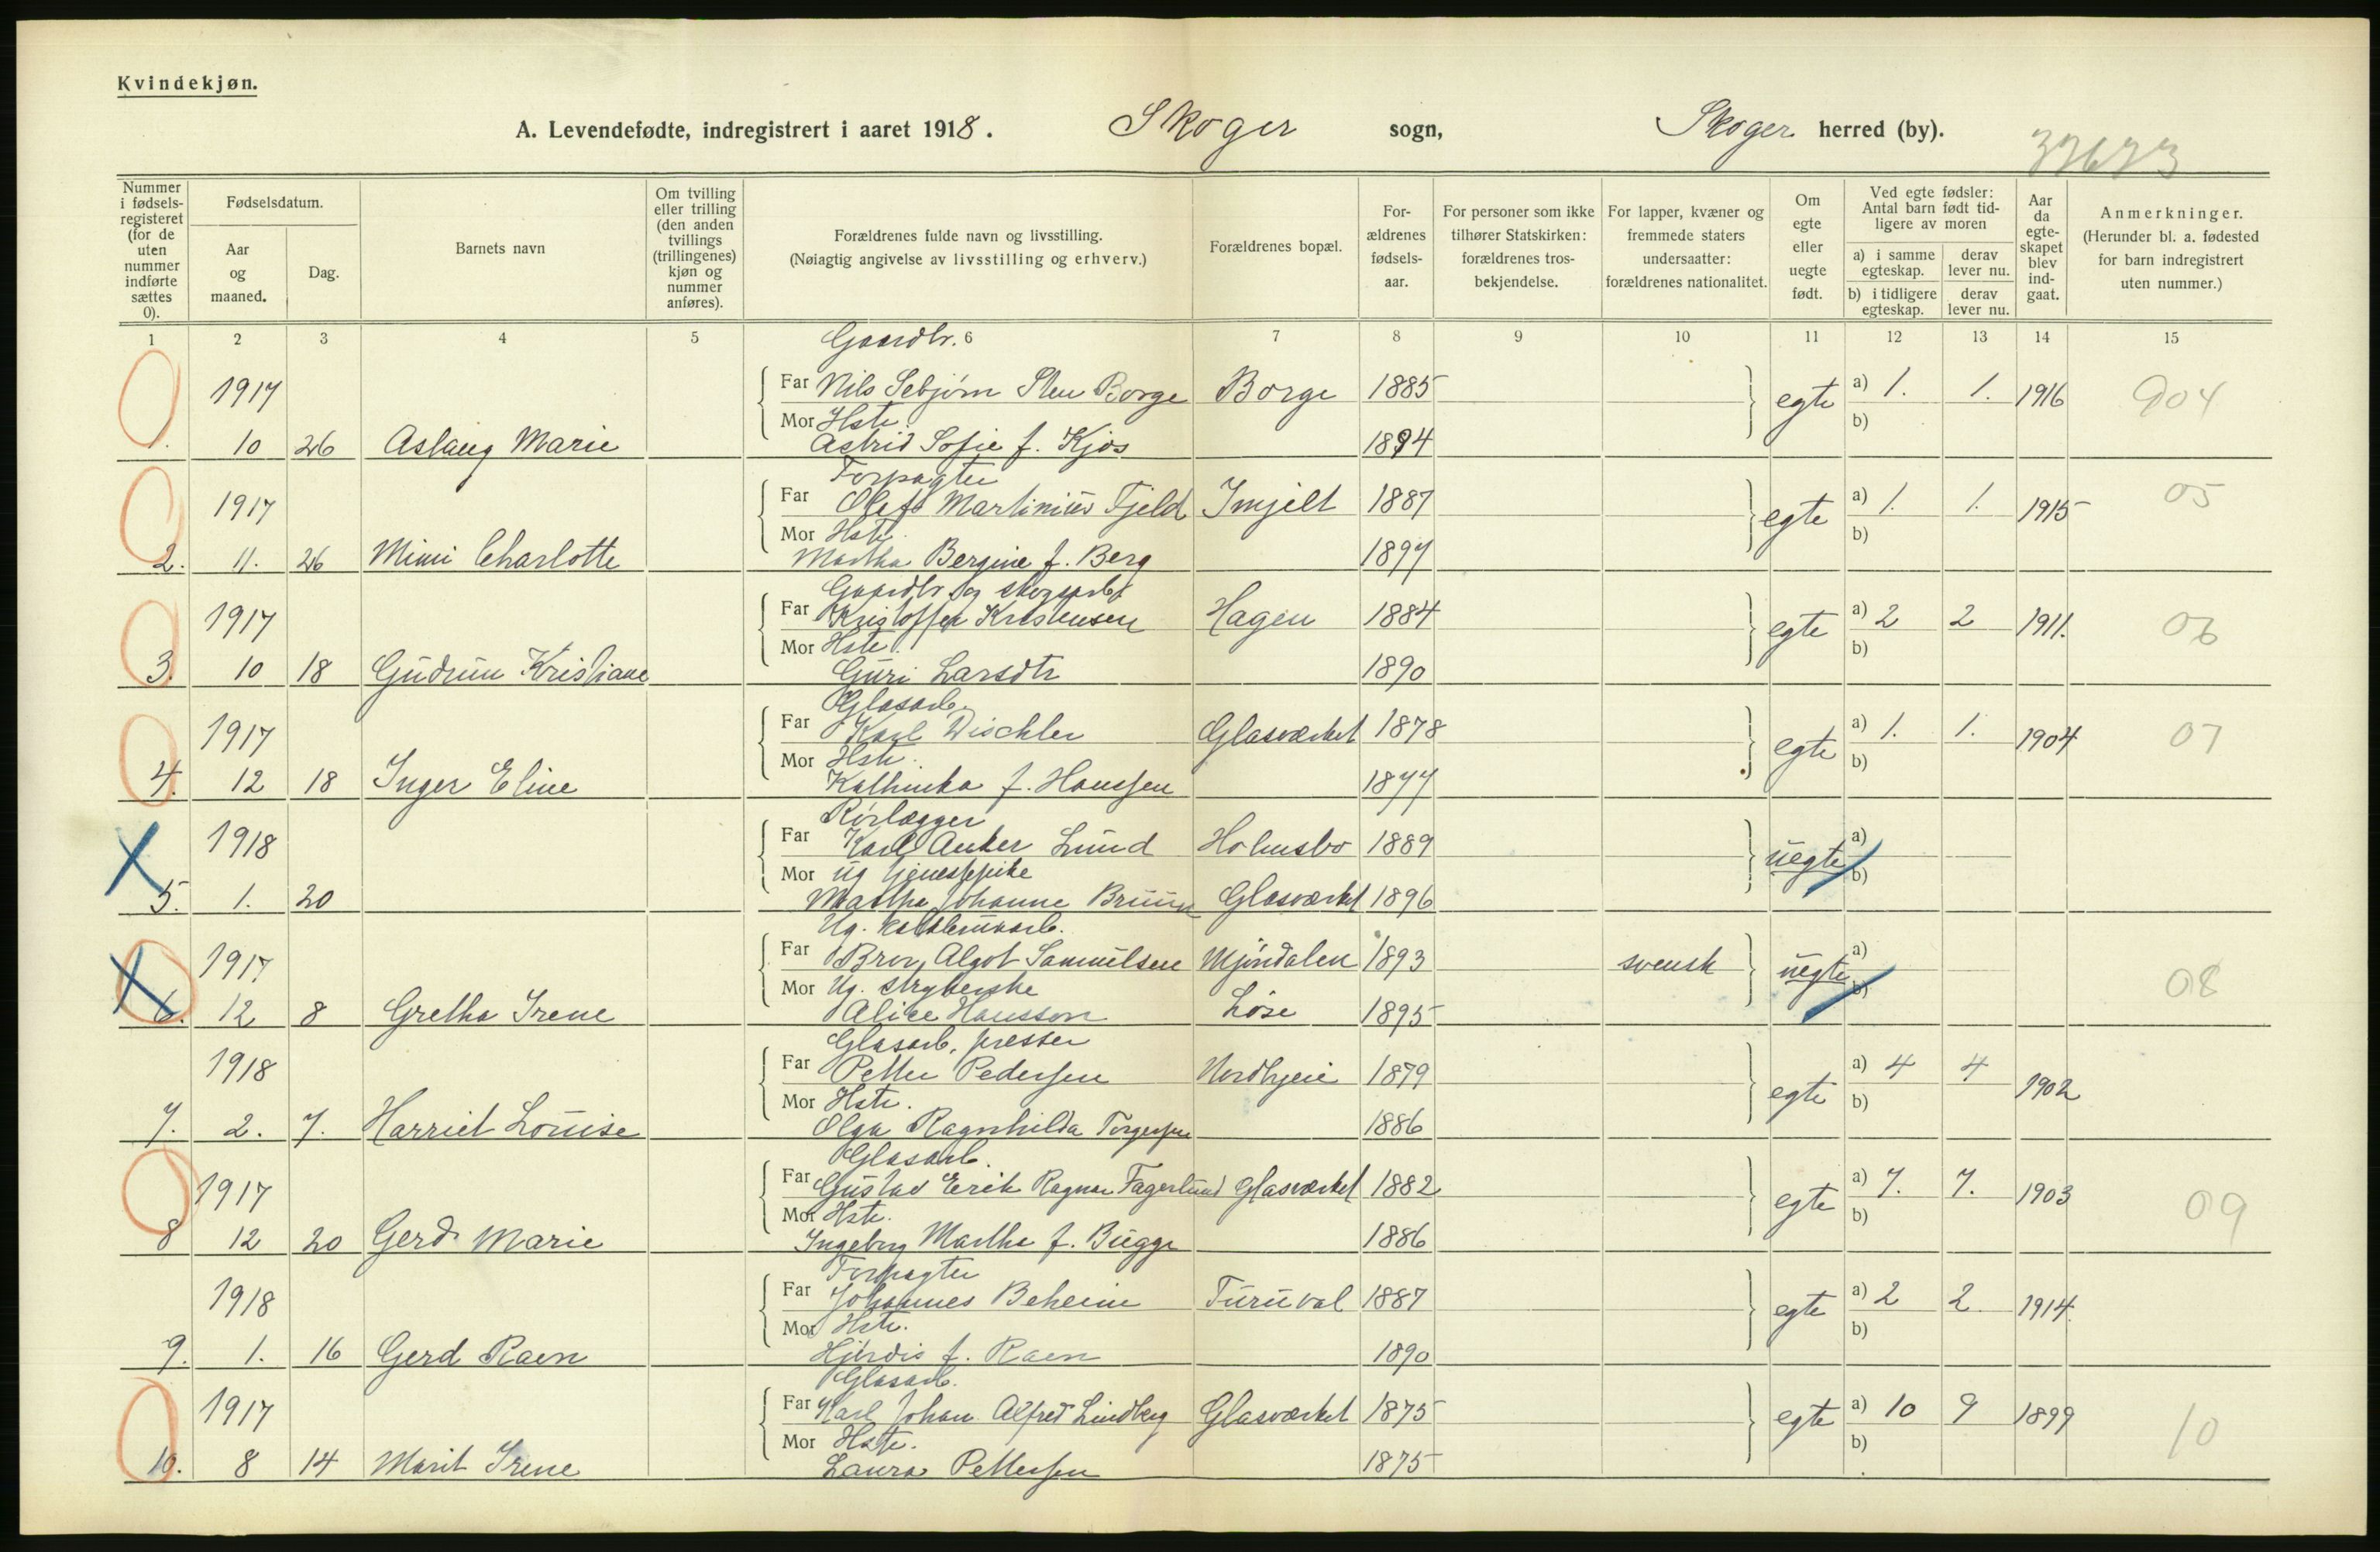 Kvindekjøn.
A. Levendefødte, indregistrert i aaret 1918. Skoger sogn, Skoger herred (by).
Nummer i fødsels-registeret (for de uten nummer indførte sættes 0).
Fødselsdatum.
Aar og maaned.
Dag.
Barnets navn
Om tvilling eller trilling (den anden tvillings (trillingenes) kjøn og nummer anføres).
Forældrenes fulde navn og livsstilling.
(Nøiagtig angivelse av livsstilling og erhverv.)
Forældrenes bopæl.
For-ældrenes fødsels-aar.
For personer som ikke tilhører Statskirken: forældrenes tros-bekjendelse.
For lapper, kvæner og fremmede staters undersaatter: forældrenes nationalitet.
Om egte eller uegte født.
Ved egte fødsler: Antal barn født tid-ligere av moren
a) i samme egteskap. derav lever nu.
b) i tidligere egteskap. derav lever nu.
Aar da egte-skapet blev ind-gaat.
Anmerkninger.
(Herunder bl. a. fødested for barn indregistrert uten nummer.)
1 2 3 4 5 6 7 8 9 10 11 12 13 14 15
Gaardbr.
1917 Far Nils Sebjørn Sten Borge Borge 1885 egte a) 1. 1. 1916 904
Mor Hstr. b)
1. 10 26 Aslaug Marie Astrid Sofie f. Kjøs 1894
Forpagter
1917 Far Olaf Martinius Fjeld Imjelt 1887 egte a) 1. 1. 1915 05
Mor Hstr. b)
2. 11. 26 Mimi Charlotte Martha Bergine f. Berg 1897
Gaardbr. og skogsarb.
1917 Far Kristoffer Kristensen Hagen 1884 egte a) 2 2 1911. 06
Mor Hstr. b)
3. 10 18 Gudrun Kristiane Guri Larsdtr 1890
Glasarb.
1917 Far Karl Dischler Glasværket 1878 egte a) 1. 1. 1904 07
Mor Hstr. b)
4. 12 18 Inger Eline Kathinka f. Hanssen 1877
Rørlægger
1918 Far Karl Anker Lund Holmsbo 1889 uegte a)
Mor ug tjenestepike b)
5. 1. 20 Martha Johanne Bruun Glasværket 1896
Ug.
1917 Far Bror Algot Samuelsen Mjøndalen 1893 svensk uegte a) 08
Mor Ug. strykerske b)
6. 12 8 Gretha Irene Alice Hansson Løse 1895
Glasarb. presser
1918 Far Petter Pedersen 1879 egte a) 4 4 1902
Mor Hstr. b)
7. 2. 7. Harriet Louise Olga Ragnhilda Torgersen 1886
Glasarb.
1917 Far Gustav Erik Ragnar Fagerlund Glasværket 1882 egte a) 7. 7. 1903 09
Mor Hstr. b)
8 12 20 Gerd Marie Ingeborg Martha f. Bugge 1886
Forpagter
1918 Far Johannes Beheim 1887 egte a) 2 2 1914.
Mor Hstr. b)
9. 1. 16 Gerd Raen Hjørdis f. Raen 1890
Glasarb.
1917 Far Karl Johan Alfred Lindberg Glasværket 1875 egte a) 10 9 1899 10
Mor Hstr. b)
10. 8 14 Marit Irene Laura Pettersen 1875